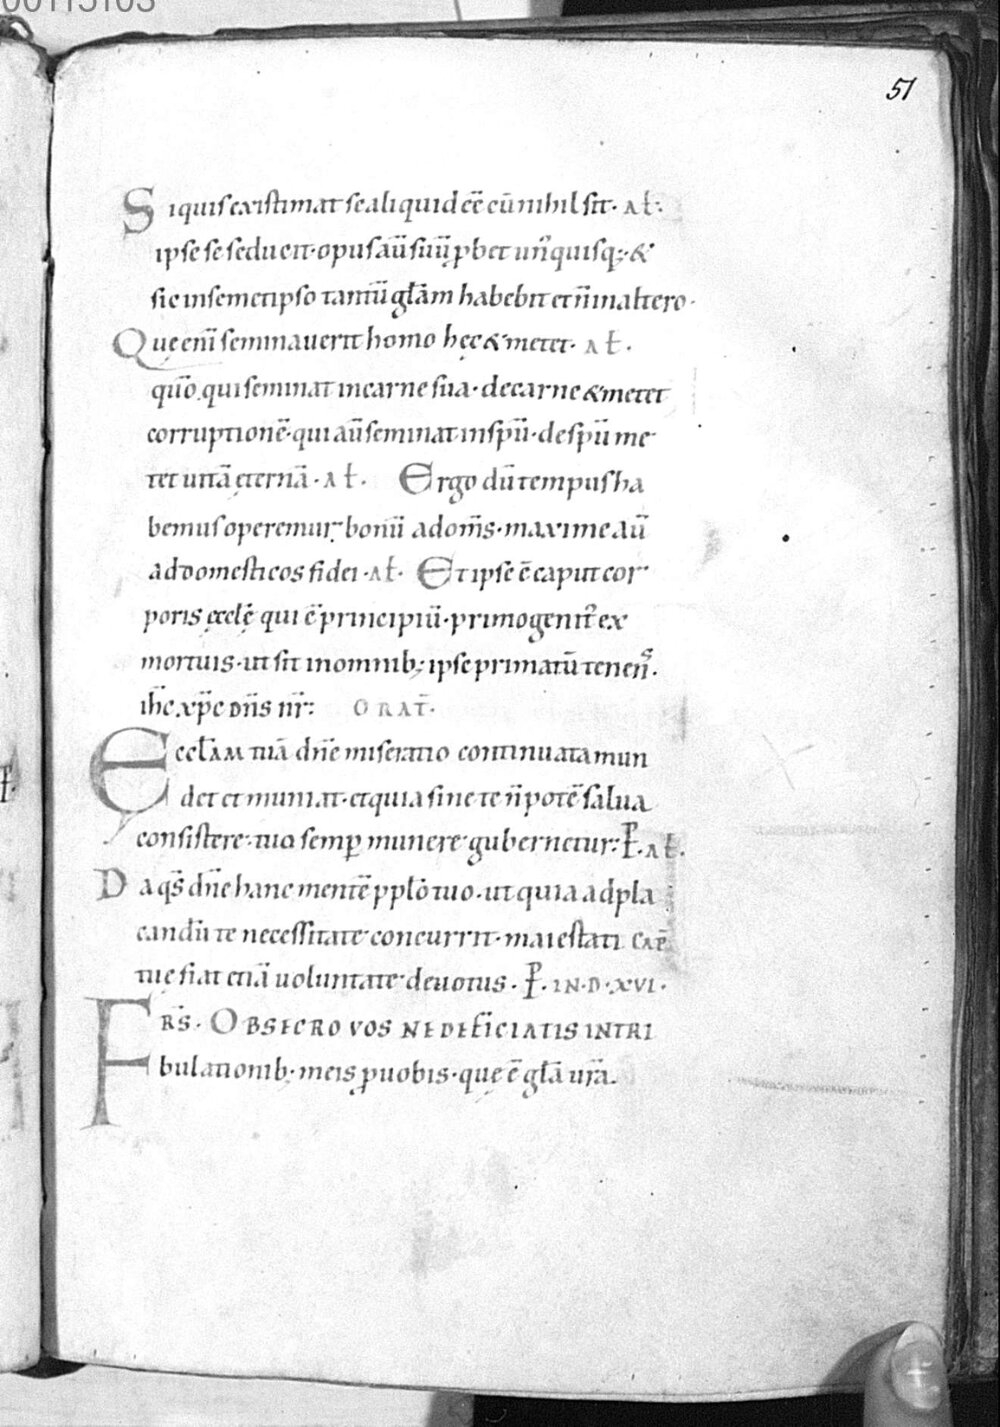 00115103
51
Siquis existimat se aliquid eē̄ cū nihil sit· Aƚ·
ipse se seducit· opus aū̄ suū ꝓbet un᷒quisq;· &
sic in semetipso tantū gƚam habebit et n̄ in altero·
Quę eni᷒ seminaverit homo hęc & metet· Aƚ·
qm̄o qui seminat in carne sua· de carne & metet
corruptionē· qui aū̄ seminat in spū̄· de spū̄ me
tet uitā ęternā· Aƚ· Ergo dū̄ tempus ha
bemus operemur bonū ad om̄s· maxime aū̄
ad domesticos fidei· Aƚ· Et ipse ē caput cor
poris ęccƚę qui ē principiū· primogenit᷒ ex
mortuis· ut sit in omnib; ipse primatū tenen᷒s·
ih̄c xp̄c dn̄s nr̄· ORAT̄·
Eccƚam tuā dn̄e miseratio continuata mun
det et muniat· et quia sine te n̄ potē salua
consistere· tuo semꝑ munere gubernetur· P̵· Aƚ·
Da qs̄ dn̄e hanc mentē pplō tuo· ut quia ad pla
candū te necessitate concurrit· maiestati CAP̄
tuę fiat etiā uoluntate deuotus· P̵· IN·D·XVI·
FRS̄· OBSECRO VOS NE DEFICIATIS IN TRI
bulationib; meis ꝓ uobis· quę ē gƚa ur̄a·